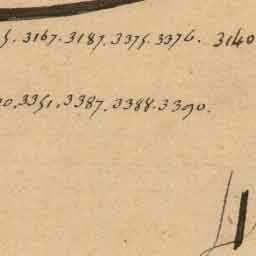 5. 3167. 3187. 3375. 3376. 3140
90. 3351. 3387. 3388. 3390.